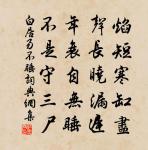 焰短寒缸盡
聲長曉漏遲
年衰自無睡
不是守三尸
白居易不睡詞典網集